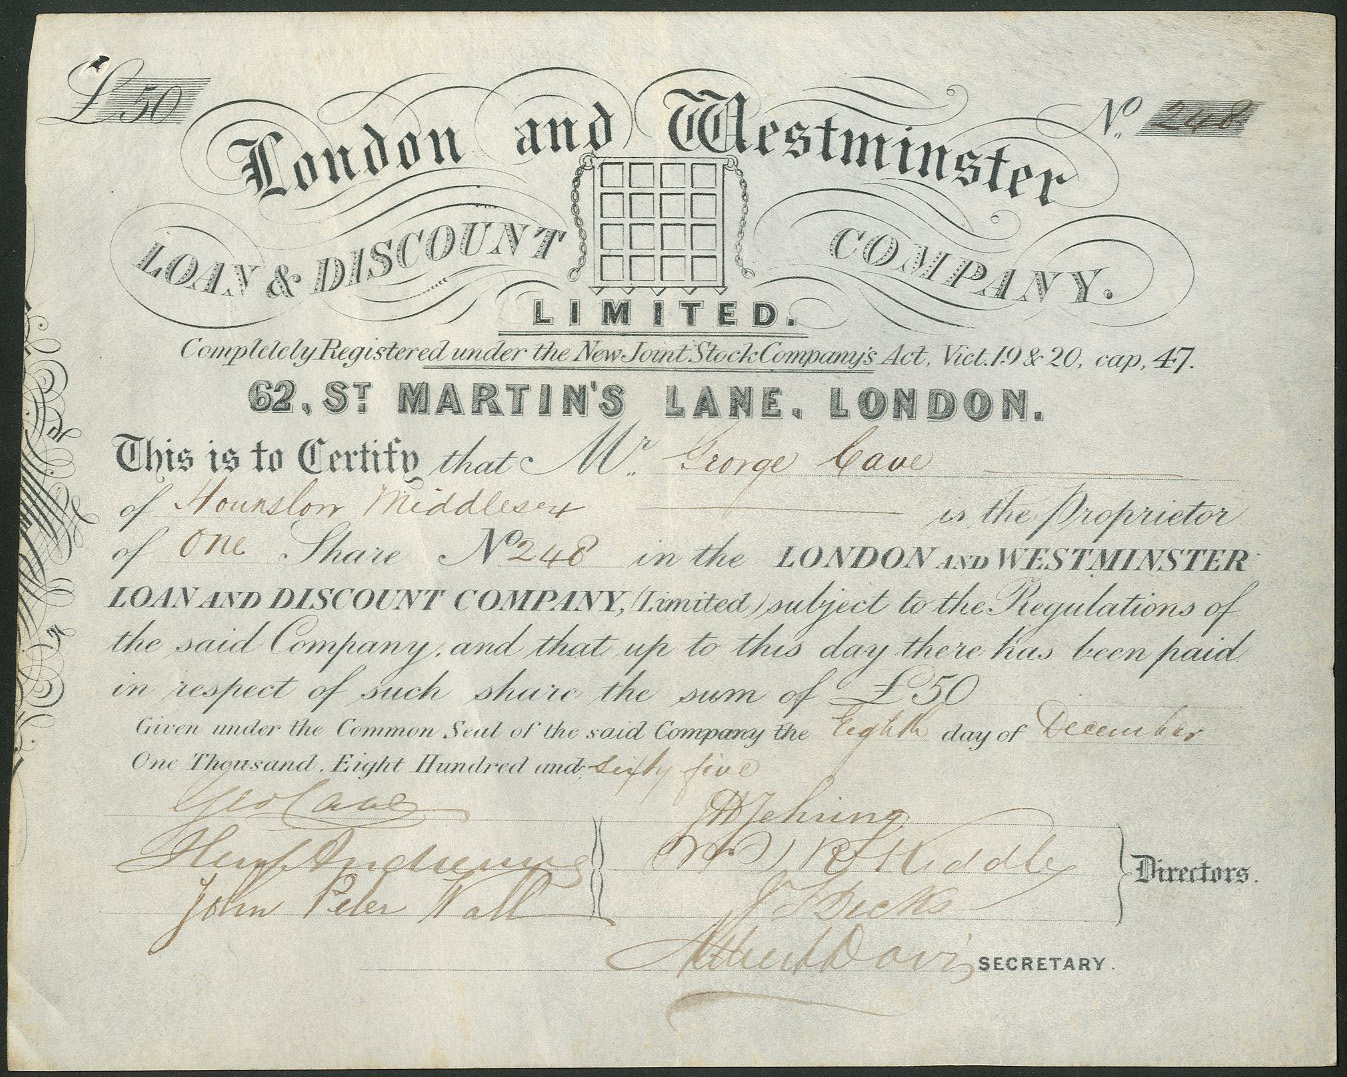 £50
No. 248
London and Westminster
LOAN & DISCOUNT COMPANY.
LIMITED.
Completely Registered under the New Joint Stock Company's Act, Vict. 19 & 20, cap, 47.
62, ST MARTIN'S LANE, LONDON.
This is to Certify that Mr. George Cave
of Hounslow Middlesex is the Proprietor
of One Share No 248 in the LONDON AND WESTMINSTER
LOAN AND DISCOUNT COMPANY, (Limited) subject to the Regulations of
the said Company, and that up to this day there has been paid
in respect of such share the sum of £50
Given under the Common Seal of the said Company the Eighth day of December
One Thousand, Eight Hundred and sixty five
Geo Cave
Jehring
Kiddle
Directors.
John Peter Wall
J S Dicks
Albert Davis SECRETARY.